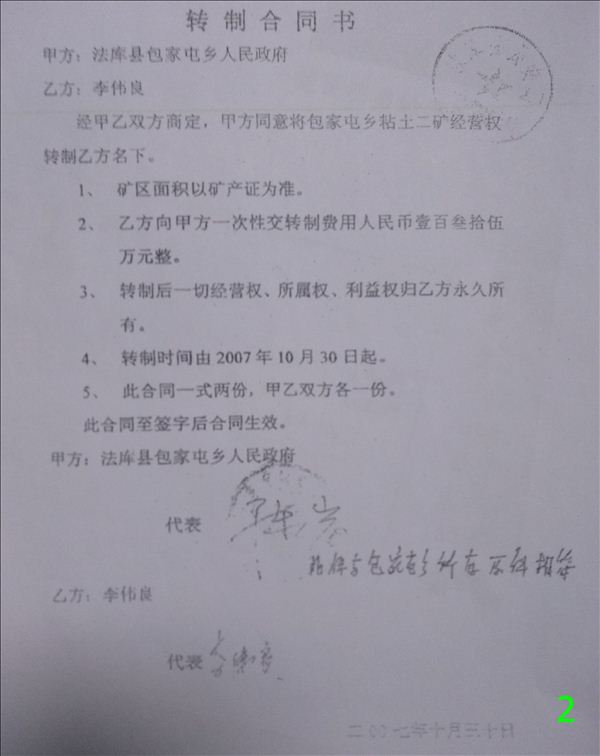 转制合同书
甲方：法库县包家屯乡人民政府
乙方：李伟良
经甲乙双方商定，甲方同意将包家屯乡粘土二矿经营权
转制乙方名下。
1、 矿区面积以矿产证为准。
2、 乙方向甲方一次性交转制费用人民币壹百叁拾伍
万元整。
3、 转制后一切经营权、所属权、利益权归乙方永久所
有。
4、 转制时间由2007年10月30日起。
5、 此合同一式两份，甲乙双方各一份。
此合同至签字后合同生效。
甲方：法库县包家屯乡人民政府
代表
乙方：李伟良
代表
二〇〇七年十月三十日
2